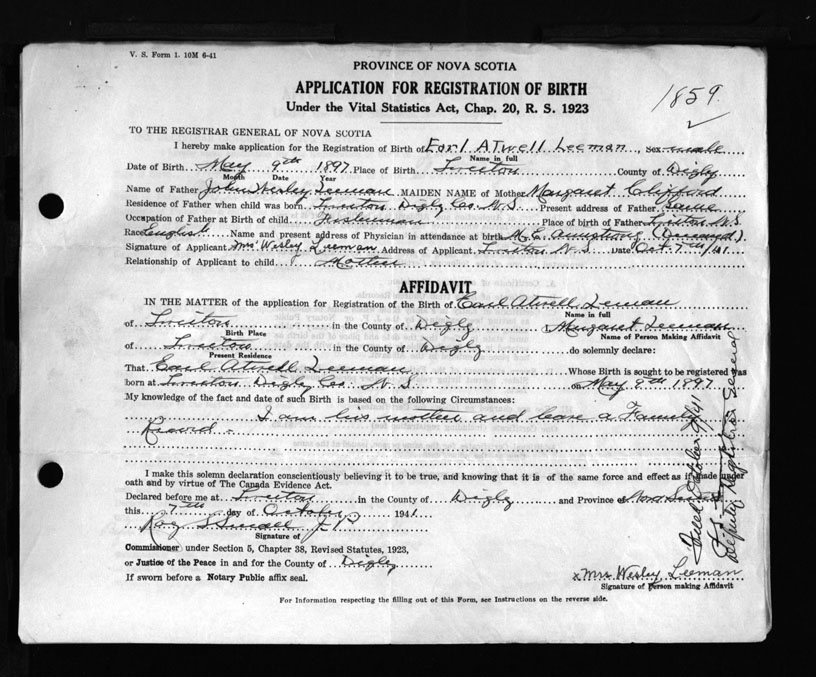 V. S. Form 1. 10M 6-41
PROVINCE OF NOVA SCOTIA
APPLICATION FOR REGISTRATION OF BIRTH
Under the Vital Statistics Act, Chap. 20, R. S. 1923
1859
TO THE REGISTRAR GENERAL OF NOVA SCOTIA
I hereby make application for the Registration of Birth of Earl Atwell Leeman, Sex male
Name in full
Date of Birth May 9th 1897 Place of Birth Tiverton County of Digby
Month Date Year
Name of Father John Wesley Leeman MAIDEN NAME of Mother Margaret Clifford
Residence of Father when child was born Tiverton Digby Co. N.S. Present address of Father Same
Occupation of Father at Birth of child Fisherman Place of birth of Father Tiverton N.S.
Race English Name and present address of Physician in attendance at birth
Signature of Applicant Mrs Wesley Leeman Address of Applicant Tiverton N.S. Date Oct. 7th/41
Relationship of Applicant to child Mother
AFFIDAVIT
IN THE MATTER of the application for Registration of the Birth of Earl Atwell Leeman
Name in full
of Tiverton in the County of Digby, Margaret Leeman
Birth Place Name of Person Making Affidavit
of Tiverton in the County of Digby do solemnly declare:
Present Residence
That Earl Atwell Leeman Whose Birth is sought to be registered was
born at Tiverton Digby Co. N.S on May 9th 1897
My knowledge of the fact and date of such Birth is based on the following Circumstances:
I am his mother and have a Family
Record -
I make this solemn declaration conscientiously believing it to be true, and knowing that it is of the same force and effect as if made under
oath and by virtue of The Canada Evidence Act.
Declared before me at Tiverton in the County of Digby and Province of Nova Scotia
this 7th day of October 1941
Roy S Small J P
Signature of
Commissioner under Section 5, Chapter 38, Revised Statutes, 1923,
or Justice of the Peace in and for the County of Digby
If sworn before a Notary Public affix seal.
x Mrs Wesley Leeman
Signature of Person making Affidavit
For Information respecting the filling out of this Form, see Instructions on the reverse side.
Filed October 9/41
Deputy Registrar General